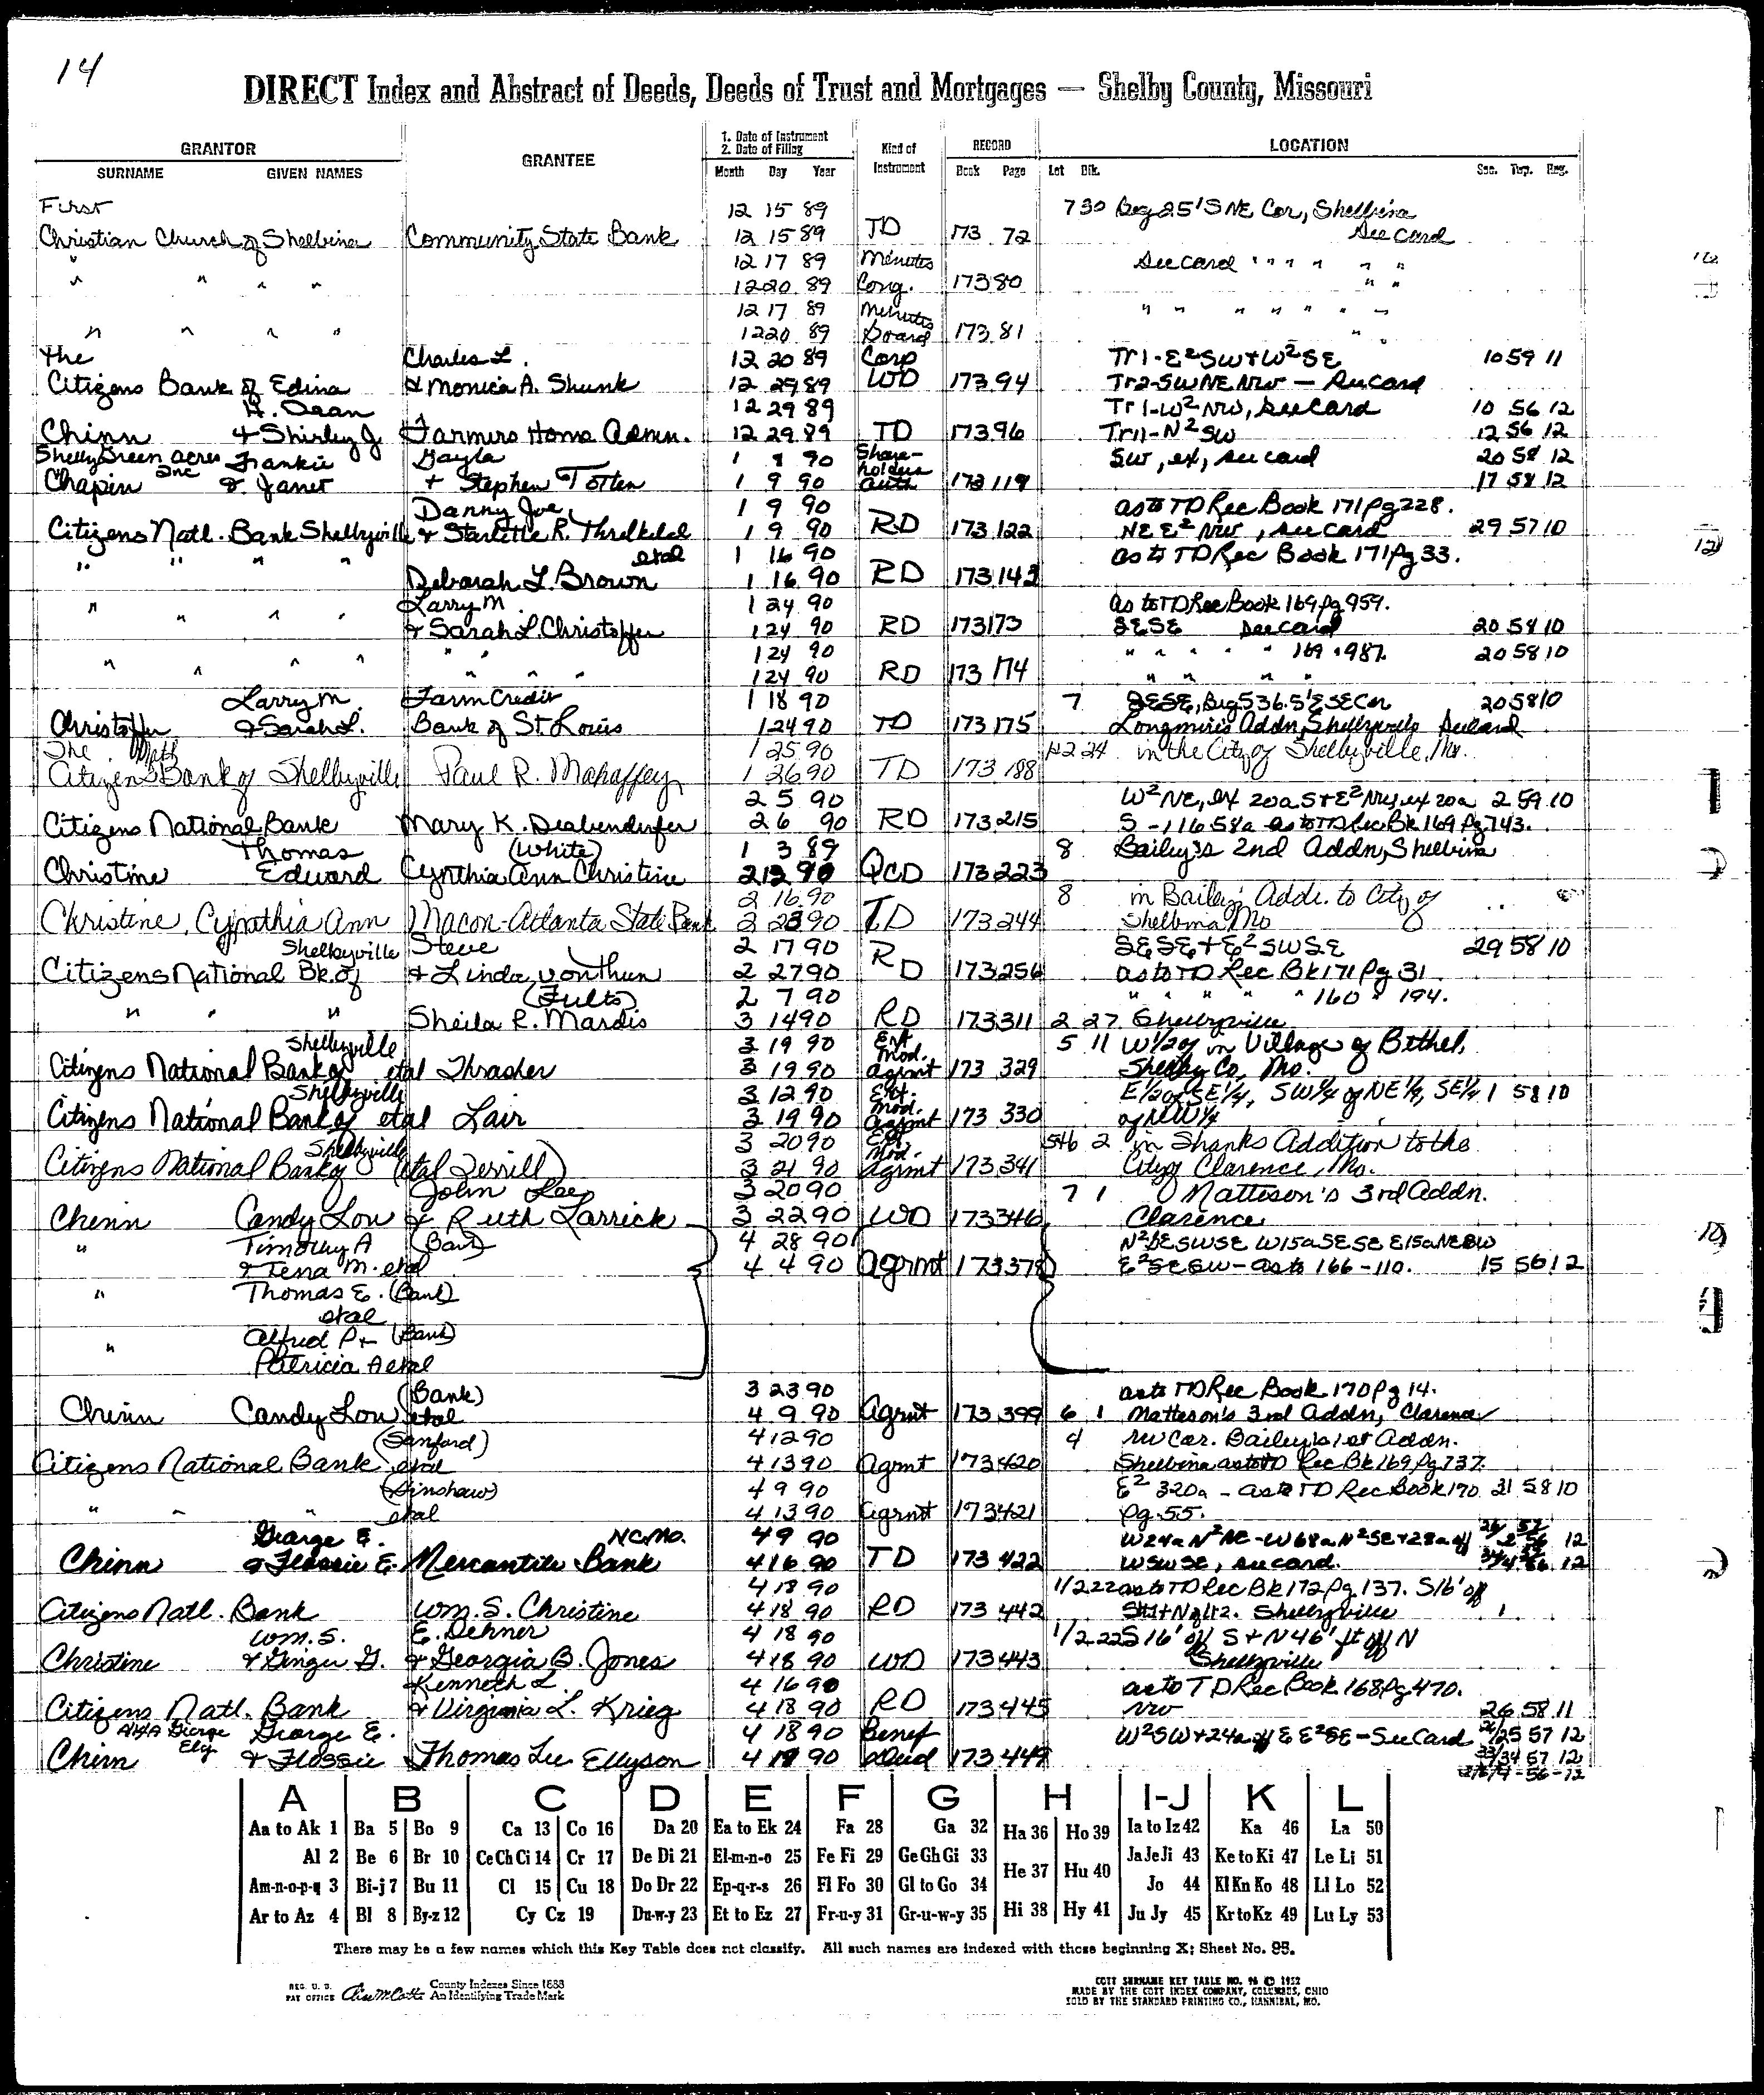 14
DIRECT Index and Abstract of Deeds, Deeds of Trust and Mortgages — Shelby County, Missouri
GRANTOR GRANTEE 1. Date of Instrument 2. Date of Filing Kind of Instrument RECORD LOCATION
SURNAME GIVEN NAMES Month Day Year Book Page Lot Blk. Sec. Twp. Rng.
First 12 15 89 730 Beg 25' S NE Cor, Shelbina
Christian Church of Shelbina Community State Bank 12 15 89 TD 173 72 See Card
12 17 89 Minutes See card " " " " " "
" " " " 12 20 89 Cong. 173 80 " "
12 17 89 Minutes " " " " " " "
" " " " 12 20 89 Board 173 81 "
The Charles L. 12 20 89 Corp Tr 1 - E² SW + W² SE 10 59 11
Citizens Bank of Edina & Monica A. Shunk 12 29 89 WD 173 94 Tr 2 - SW NE NW — See card
H. Dean 12 29 89 Tr 1 - W² NW, See Card 10 56 12
Chinn & Shirley J Farmers Home Admn. 12 29 89 TD 173 96 Tr 11 - N² SW 12 56 12
Shelly Green acres Inc Frankie Gayla 1 8 90 Share- SW, ex, see card 20 58 12
Chapin & Janet + Stephen Totten 1 9 90 holders auth 173 119 17 58 12
Danny Joe 1 9 90 as to TD Rec Book 171 pg 228.
Citizens Natl. Bank Shelbyville & Starlette R. Threlkeld 1 9 90 RD 173 122 NE E² NW, see card 29 57 10
" " " " etal 1 16 90 as to TD Rec Book 171 pg 33.
Deborah L. Brown 1 16 90 RD 173 143
" " " " Larry M 1 24 90 as to TD Rec Book 169 pg 959.
& Sarah L. Christoffer 1 24 90 RD 173 173 SE SE see card 20 58 10
1 24 90 " " " " " 169 " 987. 20 58 10
" " " " " " " 1 24 90 RD 173 174 " " " "
Larry M. Farm Credit 1 18 90 7 SE SE, Beg 536.5' E SE Cor 20 58 10
Christoffer & Sarah L. Bank of St. Louis 1 24 90 TD 173 175 Longmires Addn, Shelbyville See card
The Natl. 1 25 90 1+2 24 in the City of Shelbyville, Mo.
Citizens Bank of Shelbyville Paul R. Mahaffey 1 26 90 TD 173 188
2 5 90 W² NE, ex 20a S + E² NW, ex 20a 2 59 10
Citizens National Bank Mary K. Diabenderfer 2 6 90 RD 173 215 S - 116.58a as to TD Rec Bk 169 Pg 743.
Thomas (White) 1 3 89 8 Bailey's 2nd Addn, Shelbina
Christine Edward Cynthia Ann Christine 2 12 90 QCD 173 223
2 16 90 8 in Bailey's Addn. to City of
Christine, Cynthia Ann Macon-Atlanta State Bank 2 23 90 TD 173 244 Shelbina Mo
Shelbyville Steve 2 17 90 SE SE + E² SW SE 29 58 10
Citizens National Bk. of & Linda vonThun 2 27 90 RD 173 256 as to TD Rec Bk 171 Pg 31
(Fults) 2 7 90 " " " " " 160 " 194.
" " " Sheila R. Mardis 3 14 90 RD 173 311 2 27 Shelbyville
Shelbyville 3 19 90 Ext 5 11 W 1/2 of in Village of Bethel,
Citizens National Bank of etal Thrasher 3 19 90 Mod. agrmt 173 329 Shelby Co, Mo.
Shelbyville 3 12 90 Ext. E 1/2 of SE 1/4, SW 1/4 of NE 1/4, SE 1/4 1 58 10
Citizens National Bank of etal Lair 3 19 90 Mod. agrmt 173 330 of NW 1/4
Shelbyville 3 20 90 Ext 5+6 2 in Shanks Addition to the
Citizens National Bank of (etal Terrill) 3 21 90 Mod. agrmt 173 341 City of Clarence, Mo.
John Lee 3 20 90 7 1 Matteson's 3rd Addn.
Chinn Candy Lou & Ruth Larrick 3 22 90 WD 173 346 Clarence
" Timothy A (Bank) 4 28 90 N² SE SW SE W 15a SE SE E 15a NE SW
& Tena M. etal 4 4 90 agrmt 173 378 E² SE SW - as to 166 - 110. 15 56 12
" Thomas E. (Bank)
etal
" Alfred P + (Bank)
Patricia A etal
(Bank) 3 23 90 as to TD Rec Book 170 Pg 14.
Chinn Candy Lou etal 4 9 90 agrmt 173 399 6 1 Matteson's 3rd Addn, Clarence
(Sanford) 4 12 90 4 NW Cor. Bailey's 1st Addn.
Citizens National Bank etal 4 13 90 agrmt 173 420 Shelbina as to TD Rec Bk 169 Pg 737.
(Hinshaw) 4 9 90 E² 320a - as to TD Rec Book 170 21 58 10
" " " etal 4 13 90 agrmt 173 421 pg 55.
George E. N.C. Mo. 4 9 90 W 24a N² NE - W 68a N² SE + 28a off 12
Chinn & Flossie E. Mercantile Bank 4 16 90 TD 173 422 W SW SE, see card. 12
4 18 90 1/2 22 as to TD Rec Bk 172 Pg 137. S 16' off
Citizens Natl. Bank Wm. S. Christine 4 18 90 RD 173 442 Shelbyville
Wm. S. E. Dehner 4 18 90 1/2 22 S 16' off S + N 46' ft off N
Christine & Ginger G. & Georgia B. Jones 4 18 90 WD 173 443 Shelbyville
Kenneth L. 4 16 90 as to TD Rec Book 168 Pg 470.
Citizens Natl. Bank & Virginia L. Krieg 4 18 90 RD 173 445 NW 26 58 11
AKA George Ely George E. 4 18 90 Benef W² SW + 24a off E E² SE - See Card 26/25 57 12
Chinn & Flossie Thomas Lee Ellyson 4 19 90 Deed 173 449 33/34 57 12
A B C D E F G H I-J K L
Aa to Ak 1 Ba 5 Bo 9 Ca 13 Co 16 Da 20 Ea to Ek 24 Fa 28 Ga 32 Ha 36 Ho 39 Ia to Iz 42 Ka 46 La 50
Al 2 Be 6 Br 10 Ce Ch Ci 14 Cr 17 De Di 21 El-m-n-o 25 Fe Fi 29 Ge Gh Gi 33 He 37 Hu 40 Ja Je Ji 43 Ke to Ki 47 Le Li 51
Am-n-o-p-q 3 Bi-j 7 Bu 11 Cl 15 Cu 18 Do Dr 22 Ep-q-r-s 26 Fl Fo 30 Gl to Go 34 Jo 44 Kl Kn Ko 48 Ll Lo 52
Ar to Az 4 Bl 8 By-z 12 Cy Cz 19 Du-w-y 23 Et to Ez 27 Fr-u-y 31 Gr-u-w-y 35 Hi 38 Hy 41 Ju Jy 45 Kr to Kz 49 Lu Ly 53
There may be a few names which this Key Table does not classify. All such names are indexed with those beginning X; Sheet No. 95.
REG. U. S. PAT OFFICE County Indexes Since 1888 An Identifying Trade Mark
COTT SURNAME KEY TABLE NO. 96 © 1922
MADE BY THE COTT INDEX COMPANY, COLUMBUS, OHIO
SOLD BY THE STANDARD PRINTING CO., HANNIBAL, MO.